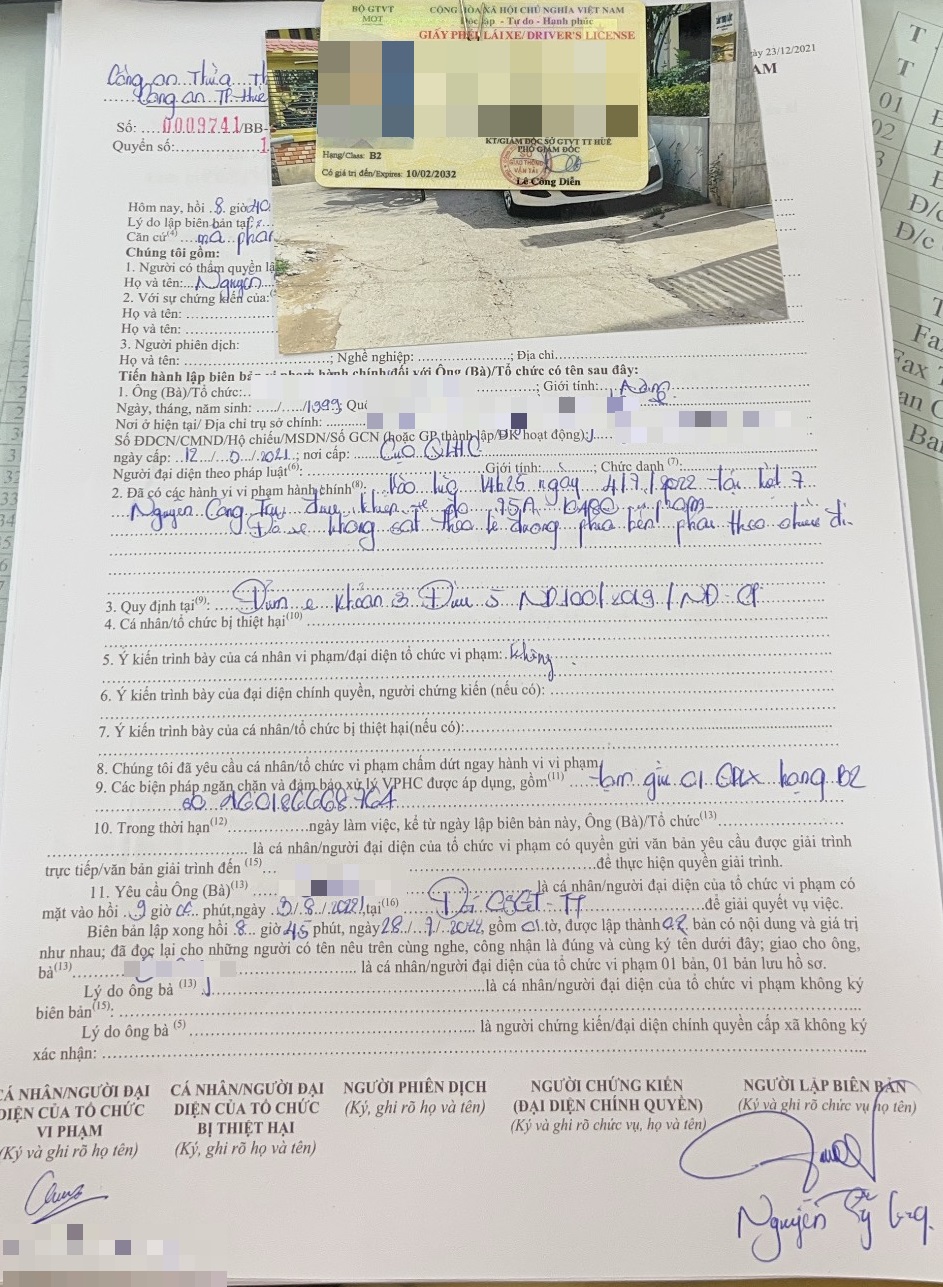 BỘ GTVT
MOT
CỘNG HÒA XÃ HỘI CHỦ NGHĨA VIỆT NAM
Độc lập - Tự do - Hạnh phúc
GIẤY PHÉP LÁI XE/ DRIVER'S LICENSE
KT/GIÁM ĐỐC SỞ GTVT TT HUẾ
PHÓ GIÁM ĐỐC
Hạng/Class: B2
Có giá trị đến/Expires: 10/02/2032
Lê Công Diễn
ngày 23/12/2021
AM
Công an Thừa Th
Công an TP Huế
Số: 0009741/BB-
Quyển số: 1
Hôm nay, hồi 8 giờ 40
Lý do lập biên bản tại
Căn cứ(4)
Chúng tôi gồm:
1. Người có thẩm quyền lậ
Họ và tên: Nguyễn
2. Với sự chứng kiến của:
Họ và tên:
Họ và tên:
3. Người phiên dịch:
Họ và tên: ; Nghề nghiệp: ; Địa chỉ
Tiến hành lập biên bản vi phạm hành chính đối với Ông (Bà)/Tổ chức có tên sau đây:
1. Ông (Bà)/Tổ chức: ; Giới tính:
Ngày, tháng, năm sinh: / /1999; Quố
Nơi ở hiện tại/ Địa chỉ trụ sở chính:
Số ĐDCN/CMND/Hộ chiếu/MSDN/Số GCN (hoặc GP thành lập/ĐK hoạt động):
ngày cấp: 12 / /2021; nơi cấp: Cục QLHC
Người đại diện theo pháp luật(6): Giới tính: ; Chức danh (7):
2. Đã có các hành vi vi phạm hành chính(8): Vào lúc 14h25 ngày 4/7/2022 tại kiệt 7
Nguyễn Công Trứ điều khiển xe ôtô 75A
Đỗ xe không sát theo lề đường phía bên phải theo chiều đi
3. Quy định tại(9): Điểm e khoản 3 Điều 5 NĐ100/2019/NĐ-CP
4. Cá nhân/tổ chức bị thiệt hại(10)
5. Ý kiến trình bày của cá nhân vi phạm/đại diện tổ chức vi phạm: Không
6. Ý kiến trình bày của đại diện chính quyền, người chứng kiến (nếu có):
7. Ý kiến trình bày của cá nhân/tổ chức bị thiệt hại(nếu có):
8. Chúng tôi đã yêu cầu cá nhân/tổ chức vi phạm chấm dứt ngay hành vi vi phạm
9. Các biện pháp ngăn chặn và đảm bảo xử lý VPHC được áp dụng, gồm(11) tạm giữ 01 GPLX hạng B2
10. Trong thời hạn(12) ngày làm việc, kể từ ngày lập biên bản này, Ông (Bà)/Tổ chức(13)
là cá nhân/người đại diện của tổ chức vi phạm có quyền gửi văn bản yêu cầu được giải trình
trực tiếp/văn bản giải trình đến (15) để thực hiện quyền giải trình.
11. Yêu cầu Ông (Bà)(13) là cá nhân/người đại diện của tổ chức vi phạm có
mặt vào hồi 9 giờ phút, ngày /8/2022 tại(16) Đội CSGT-TT để giải quyết vụ việc.
Biên bản lập xong hồi 8 giờ 45 phút, ngày 28/7/2022, gồm 01 tờ, được lập thành 02 bản có nội dung và giá trị
như nhau; đã đọc lại cho những người có tên nêu trên cùng nghe, công nhận là đúng và cùng ký tên dưới đây; giao cho ông,
bà(13) là cá nhân/người đại diện của tổ chức vi phạm 01 bản, 01 bản lưu hồ sơ.
Lý do ông bà (13) là cá nhân/người đại diện của tổ chức vi phạm không ký
biên bản(15):
Lý do ông bà (5) là người chứng kiến/đại diện chính quyền cấp xã không ký
xác nhận:
CÁ NHÂN/NGƯỜI ĐẠI
DIỆN CỦA TỔ CHỨC
VI PHẠM
(Ký và ghi rõ họ tên)
CÁ NHÂN/NGƯỜI ĐẠI
DIỆN CỦA TỔ CHỨC
BỊ THIỆT HẠI
(Ký, ghi rõ họ và tên)
NGƯỜI PHIÊN DỊCH
(Ký, ghi rõ họ và tên)
NGƯỜI CHỨNG KIẾN
(ĐẠI DIỆN CHÍNH QUYỀN)
(Ký và ghi rõ chức vụ, họ và tên)
NGƯỜI LẬP BIÊN BẢN
(Ký và ghi rõ chức vụ họ tên)
Nguyễn Sỹ